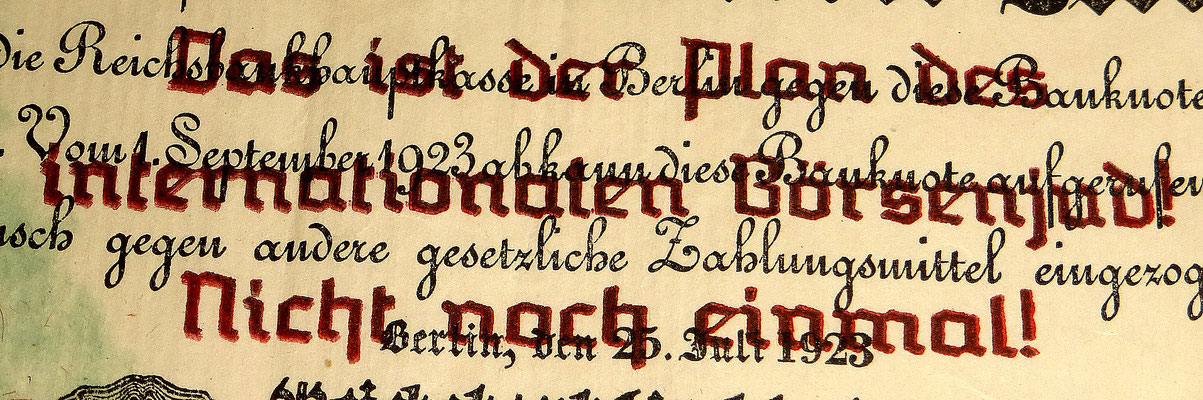 Die Reichsbankhauptkasse in Berlin gegen diese Banknote
Das ist der Plan des
Vom 1. September 1923 ab kann diese Banknote aufgerufen
internationalen Börsenjud!
usch gegen andere gesetzliche Zahlungsmittel eingezog
Nicht noch einmal!
Berlin, den 25. Juli 1923